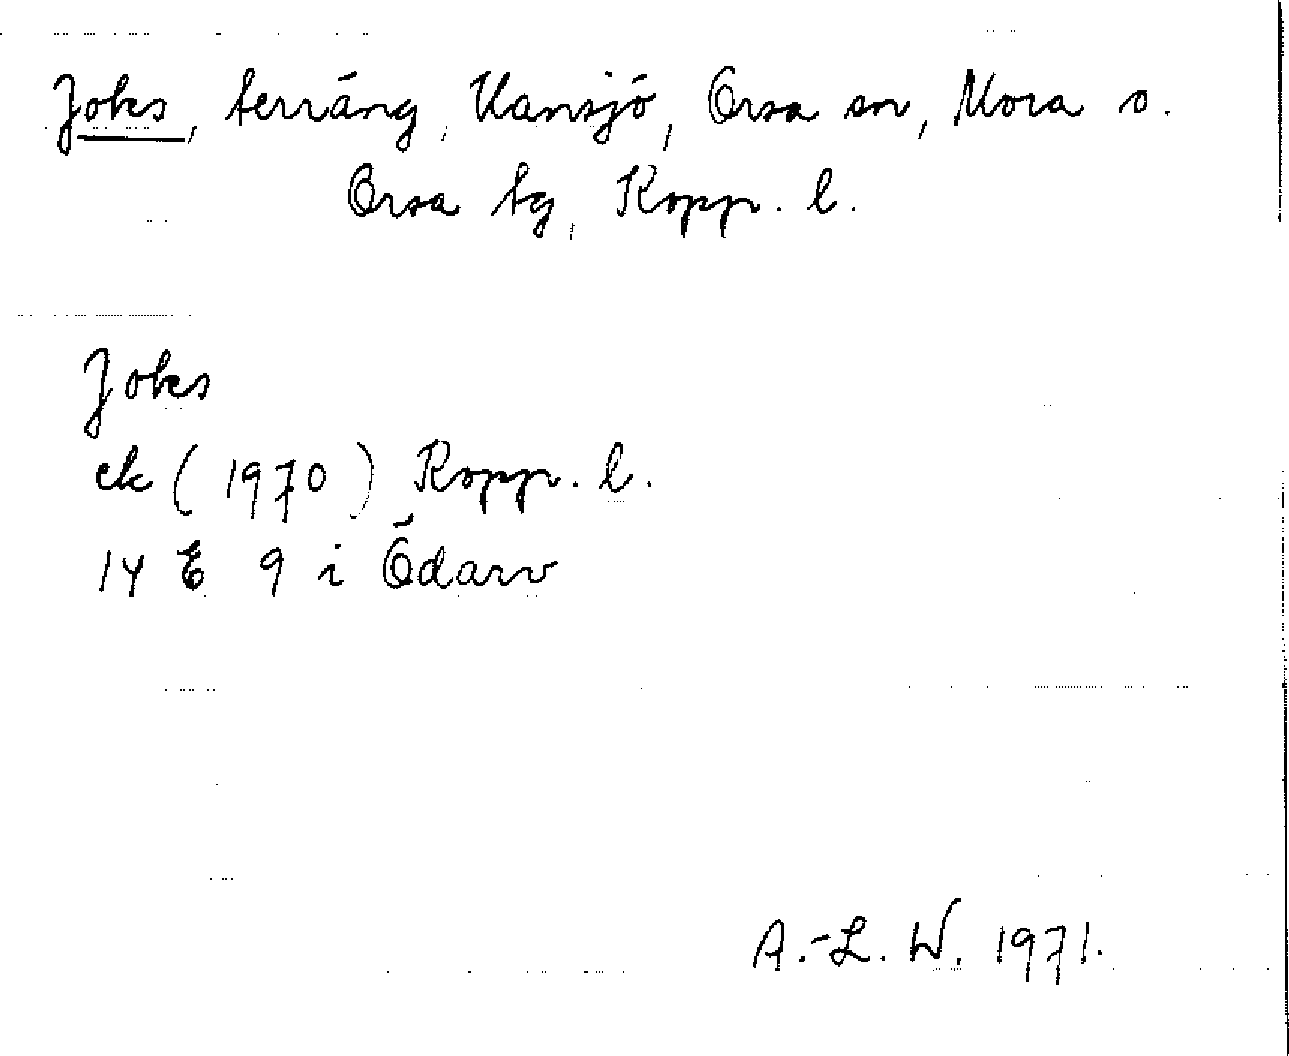 Joks, terräng, Hansjö, Orsa sn, Mora s.
Orsa tg, Kopp. l.
Joks
ek (1970) Kopp. l.
14 E 9 i Ödarv
A.-L. W. 1971.